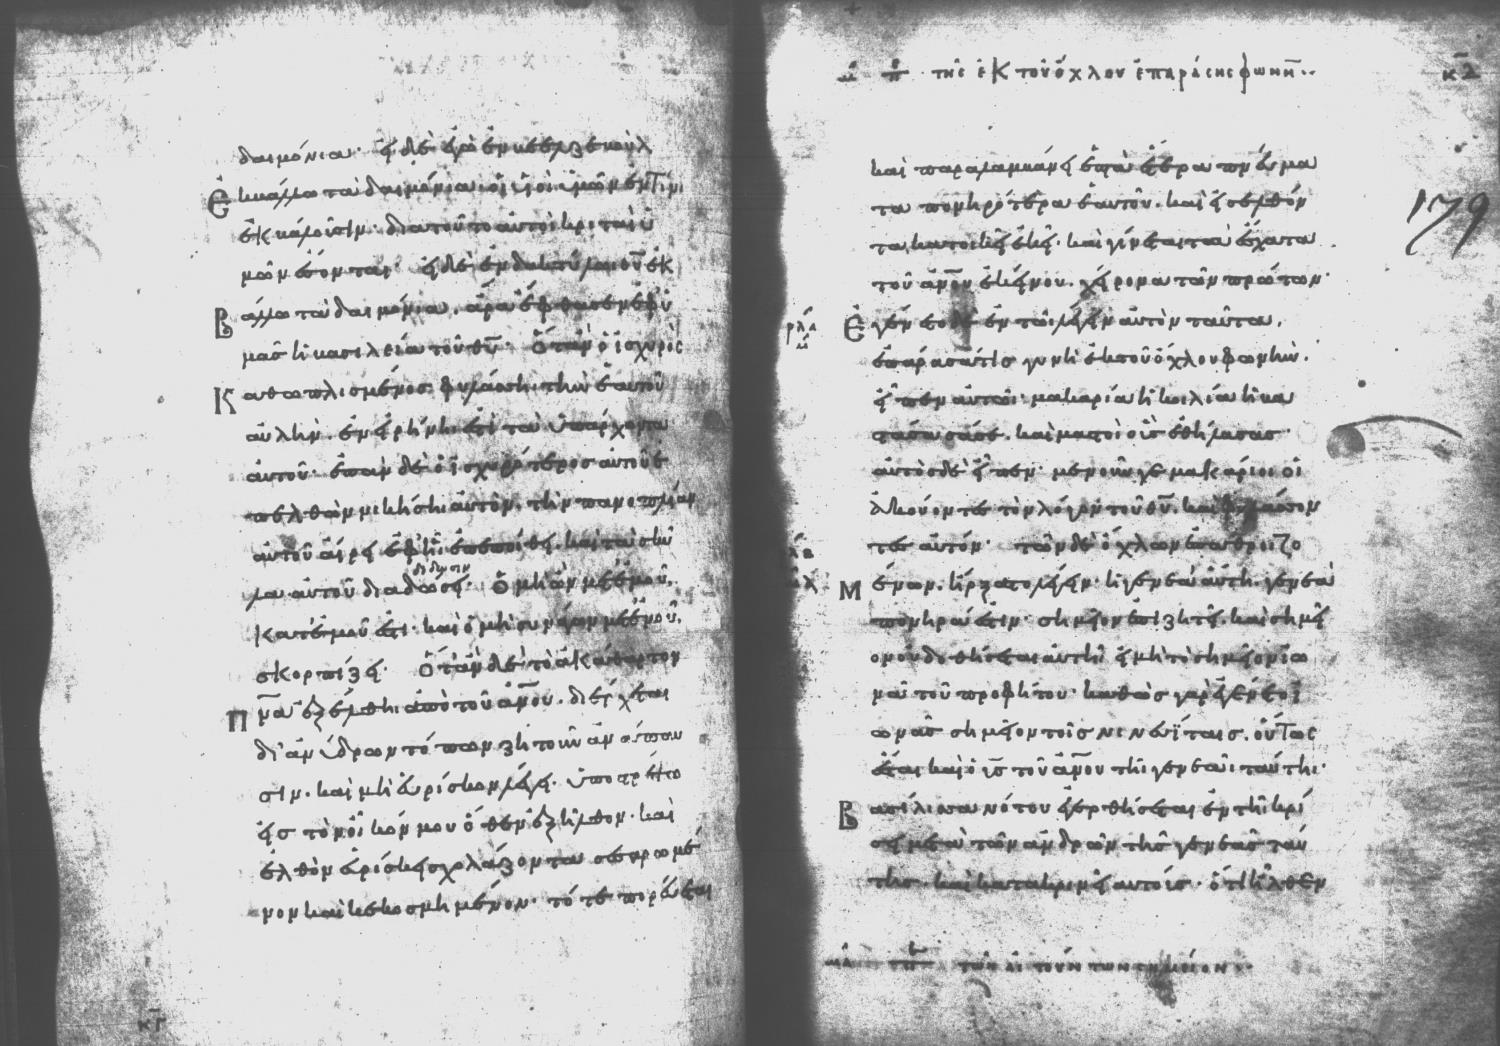 δαιμόνια· εἰ δὲ ἐγὼ ἐν βεελζεβοὺλ
Ἐκβάλλω τὰ δαιμόνια, οἱ υἱοὶ ὑμῶν ἐν τίνι
ἐκβάλουσιν· διατοῦτο αὐτοὶ κριταὶ ὑ
μῶν ἔσονται· εἰ δὲ ἐν δακτύλω θ̅υ̅ ἐκ
Βάλλω τὰ δαιμόνια, ἄρα ἔφθασεν ἐφ' ὑ
μᾶς ἡ βασιλεία τοῦ θ̅υ̅· Ὅταν ὁ ἰσχυρὸς
Καθωπλισμένος φυλάσση τὴν ἑαυτοῦ
αὐλὴν, ἐν εἰρήνη ἐστὶ τὰ ὑπάρχοντα
αὐτοῦ· ἐπὰν δὲ ὁ ἰσχυρότερος αὐτοῦ ἐ
πελθὼν νικήση αὐτὸν, τὴν πανοπλίαν
αὐτοῦ αἴρει ἐφ' ἧ ἐπεποίθει, καὶ τὰ σκῦ
λα αὐτοῦ διαδώσει· Ὁ μὴ ὢν μετ' ἐμοῦ,
κατ' ἐμοῦ ἐστι· καὶ ὁ μὴ συνάγων μετ' ἐμοῦ,
σκορπίζει· Ὅταν δὲ τὸ ἀκάθαρτον
Π̅ν̅α̅ ἐξέλθη ἀπὸ τοῦ ἀ̅ν̅ο̅υ̅, διέρχεται
δι' ἀνύδρων τόπων ζητοῦν ἀνάπαυ
σιν, καὶ μὴ εὑρίσκον λέγει· ὑποστρέψω
εἰς τὸν οἶκόν μου ὅθεν ἐξῆλθον· καὶ
ἐλθὸν εὑρίσκει σχολάζοντα σεσαρωμέ
νον καὶ κεκοσμημένον· τότε πορεύεται
κγ
τῆς ἐκ τοῦ ὄχλου ἐπαράσης φωνήν
κδ
179
καὶ παραλαμβάνει ἑπτὰ ἕτερα πνεύματα
τα πονηρότερα ἑαυτοῦ, καὶ εἰσελθόν
τα κατοικεῖ ἐκεῖ· καὶ γίνεται τὰ ἔσχατα
τοῦ ἀ̅ν̅ο̅υ̅ ἐκείνου χείρονα τῶν πρώτων·
Ἐγένετο δὲ ἐν τῶ λέγειν αὐτὸν ταῦτα,
ἐπάρασά τις γυνὴ ἐκ τοῦ ὄχλου φωνὴν,
εἶπεν αὐτῶ· μακαρία ἡ κοιλία ἡ βα
στάσασά σε, καὶ μαστοὶ οὓς ἐθήλασας·
αὐτὸς δὲ εἶπεν· μενοῦνγε μακάριοι οἱ
ἀκούοντες τὸν λόγον τοῦ θ̅υ̅, καὶ φυλάσσον
τες αὐτόν· τῶν δὲ ὄχλων ἐπαθροιζο
Μένων, ἤρξατο λέγειν· ἡ γενεὰ αὕτη γενεὰ
πονηρά ἐστιν· σημεῖον ἐπιζητεῖ, καὶ σημεῖ
ον οὐ δοθήσεται αὐτῆ εἰ μὴ τὸ σημεῖον ἰω
νᾶ τοῦ προφήτου· καθὼς γὰρ ἐγένετο ἰ
ωνᾶς σημεῖον τοῖς νινευΐταις, οὕτως
ἔσται καὶ ὁ υ̅ς̅ τοῦ ἀ̅ν̅ο̅υ̅ τῆ γενεᾶ ταύτη·
Βασίλισσα νότου ἐγερθήσεται ἐν τῆ κρί
σει μετὰ τῶν ἀνδρῶν τῆς γενεᾶς ταύ
της, καὶ κατακρινεῖ αὐτούς· ὅτι ἦλθεν
τῶν αἰτούντων σημεῖον